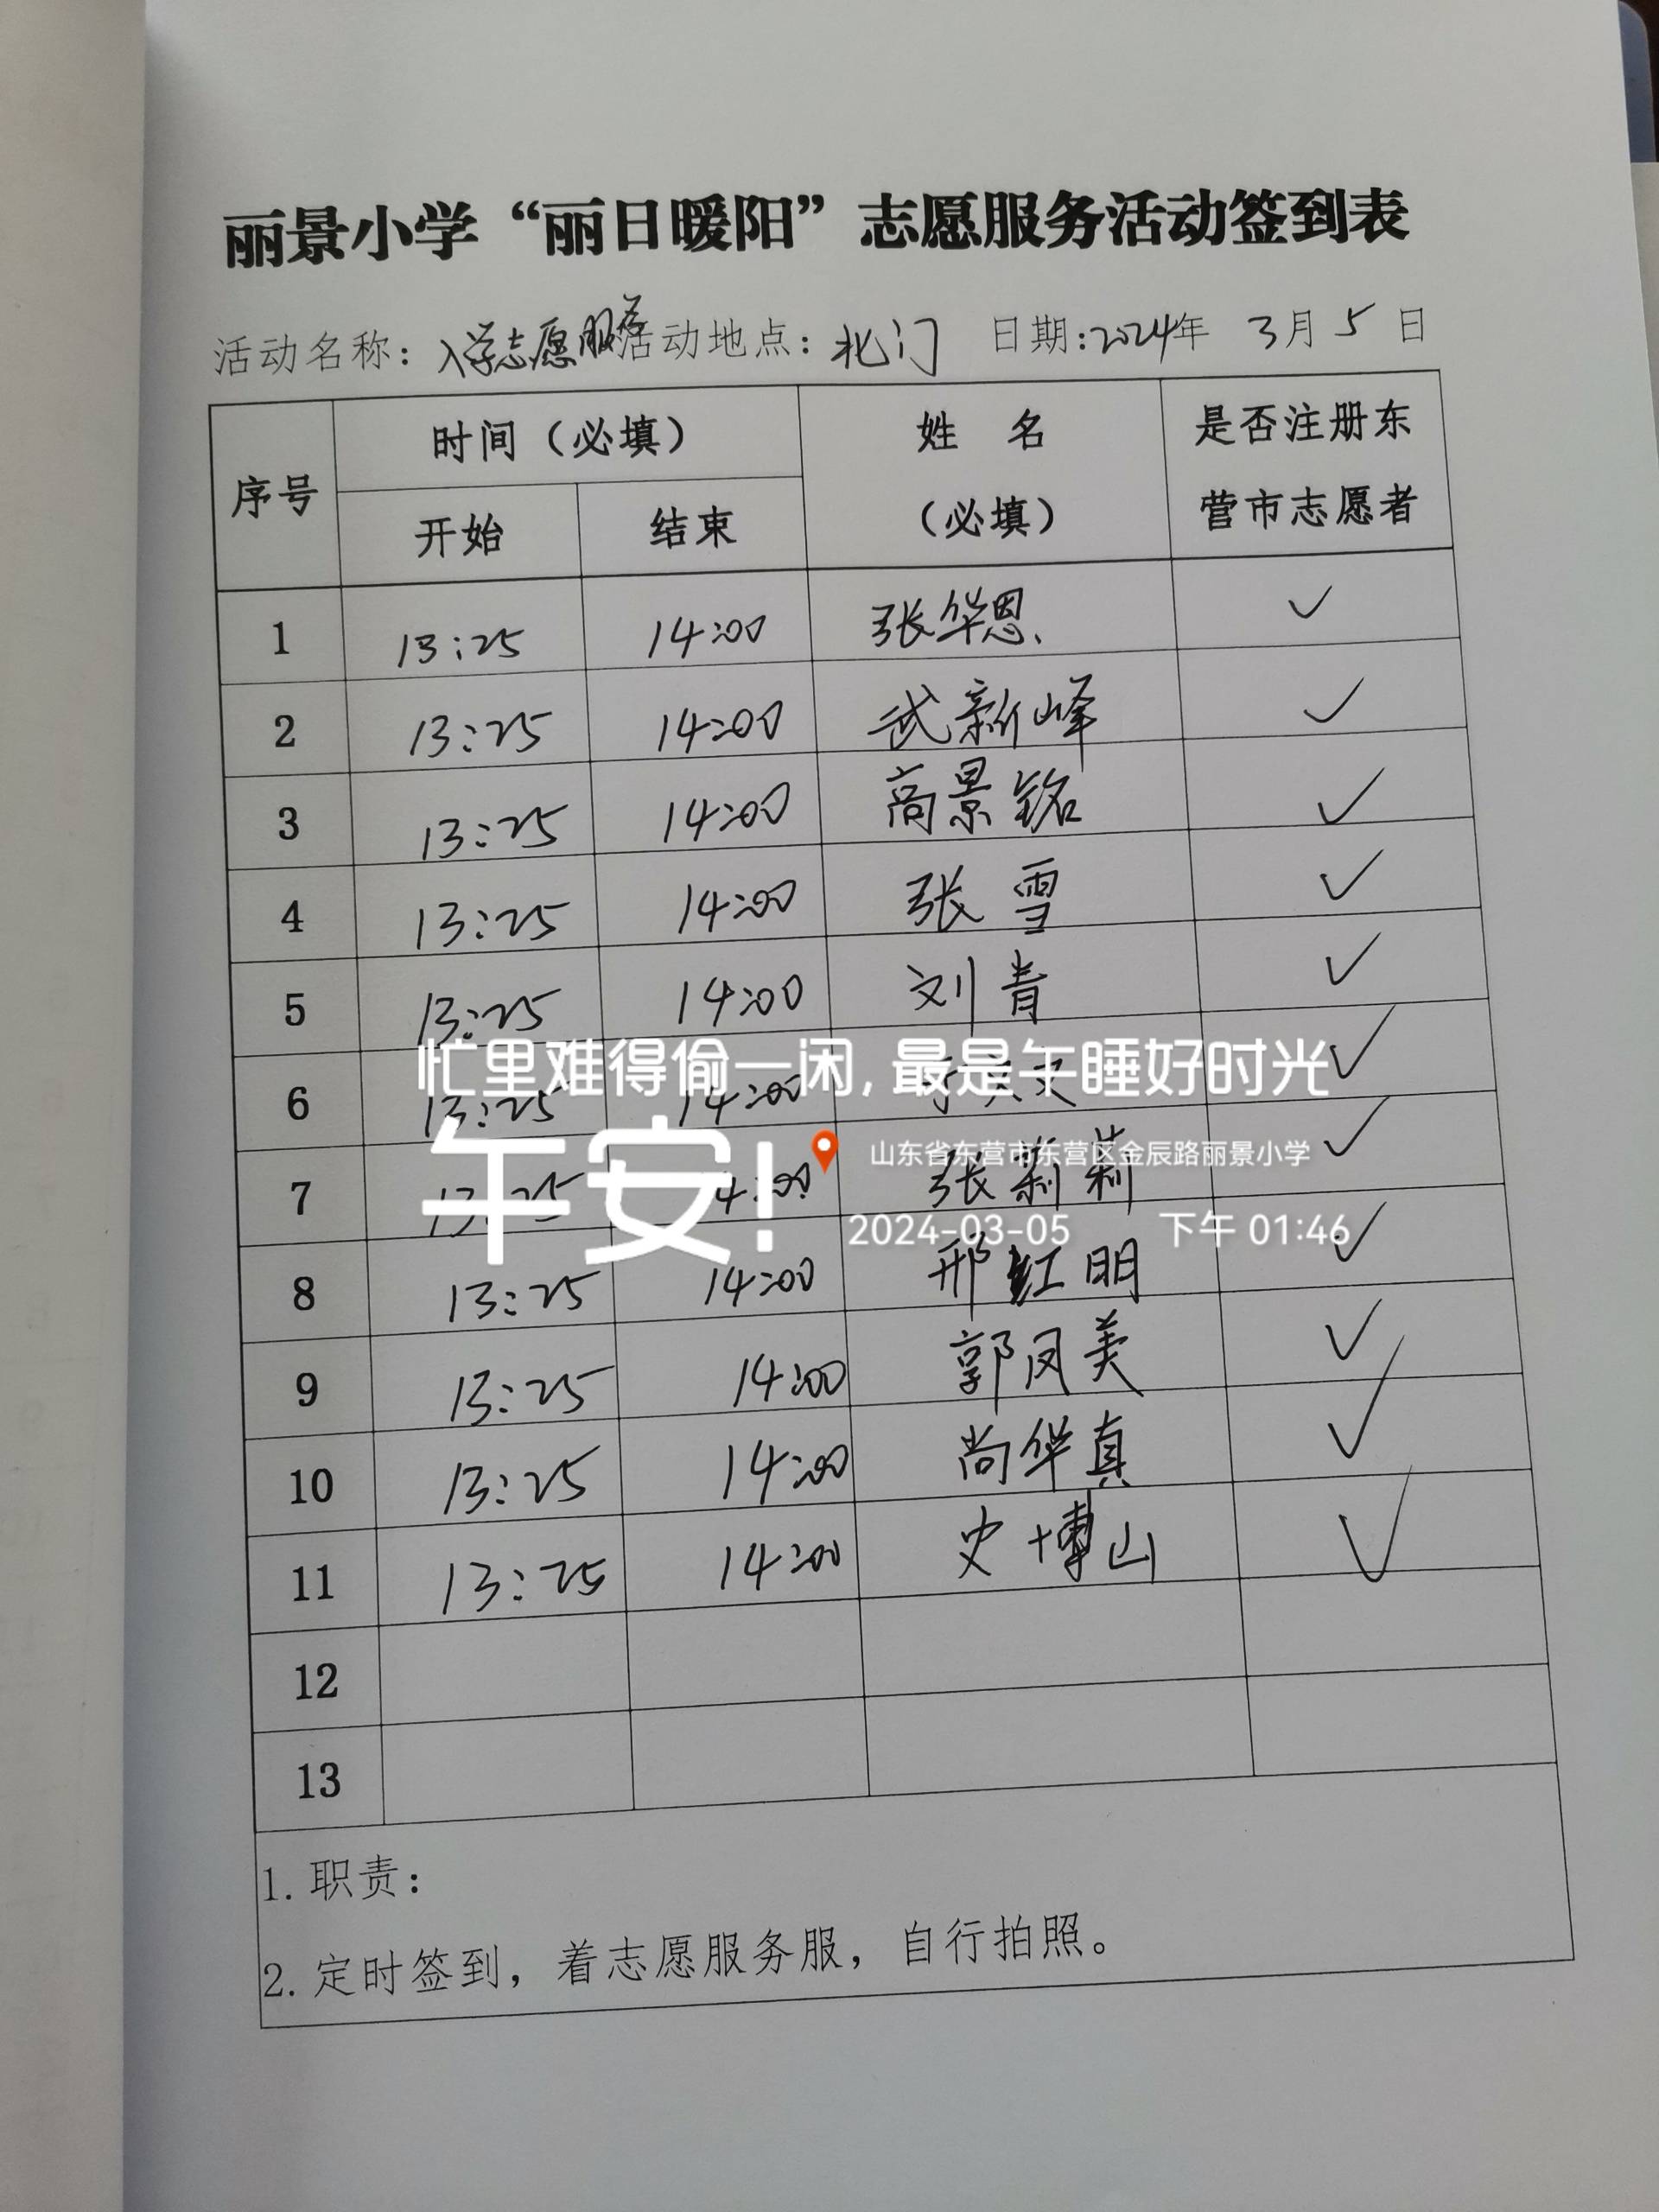 丽景小学“丽日暖阳”志愿服务活动签到表
活动名称：入学志愿服务 活动地点：北门 日期：2024年 3月 5日
序号 时间（必填） 姓 名（必填） 是否注册东营市志愿者
开始 结束
1 13:25 14:00 张华恩 ✓
2 13:25 14:00 武新峰 ✓
3 13:25 14:00 高景铭 ✓
4 13:25 14:00 张雪 ✓
5 13:25 14:00 刘青 ✓
忙里难得偷一闲，最是午睡好时光
6 13:25 14:00 ✓
午安！
山东省东营市东营区金辰路丽景小学
7 13:25 14:00 张莉莉 ✓
2024-03-05 下午 01:46
8 13:25 14:00 邢红明 ✓
9 13:25 14:00 郭凤美 ✓
10 13:25 14:00 尚华真 ✓
11 13:25 14:00 史博山 ✓
12
13
1. 职责：
2. 定时签到，着志愿服务服，自行拍照。